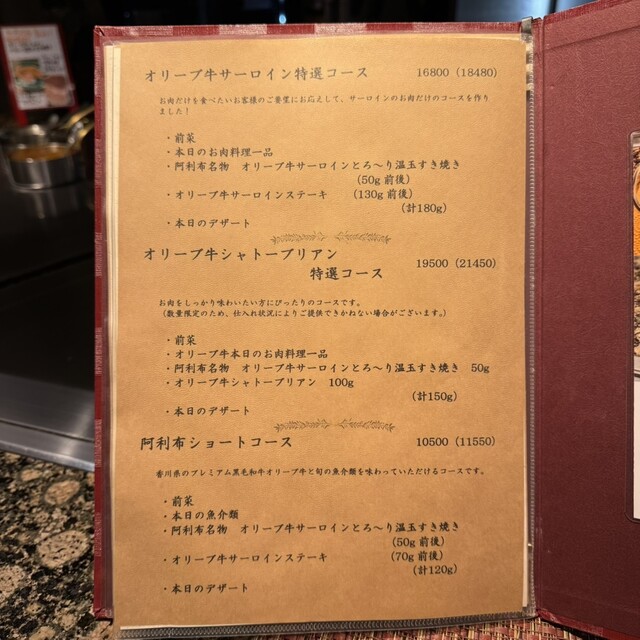 オリーブ牛サーロイン特選コース 16800（18480）
お肉だけを食べたいお客様のご要望にお応えして、サーロインのお肉だけのコースを作り
ました！
・前菜
・本日のお肉料理一品
・阿利布名物 オリーブ牛サーロインとろ～り温玉すき焼き
（50g 前後）
・オリーブ牛サーロインステーキ （130g 前後）
（計180g）
・本日のデザート
オリーブ牛シャトーブリアン
特選コース 19500（21450）
お肉をしっかり味わいたい方にぴったりのコースです。
（数量限定のため、仕入れ状況によりご提供できかねない場合がございます。）
・前菜
・オリーブ牛本日のお肉料理一品
・阿利布名物 オリーブ牛サーロインとろ～り温玉すき焼き 50g
・オリーブ牛シャトーブリアン 100g
（計150g）
・本日のデザート
阿利布ショートコース 10500（11550）
香川県のプレミアム黒毛和牛オリーブ牛と旬の魚介類を味わっていただけるコースです。
・前菜
・本日の魚介類
・阿利布名物 オリーブ牛サーロインとろ～り温玉すき焼き
（50g 前後）
・オリーブ牛サーロインステーキ （70g 前後）
（計120g）
・本日のデザート